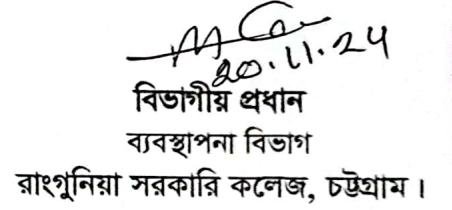 20.11.24
বিভাগীয় প্রধান
ব্যবস্থাপনা বিভাগ
রাংগুনিয়া সরকারি কলেজ, চট্টগ্রাম।